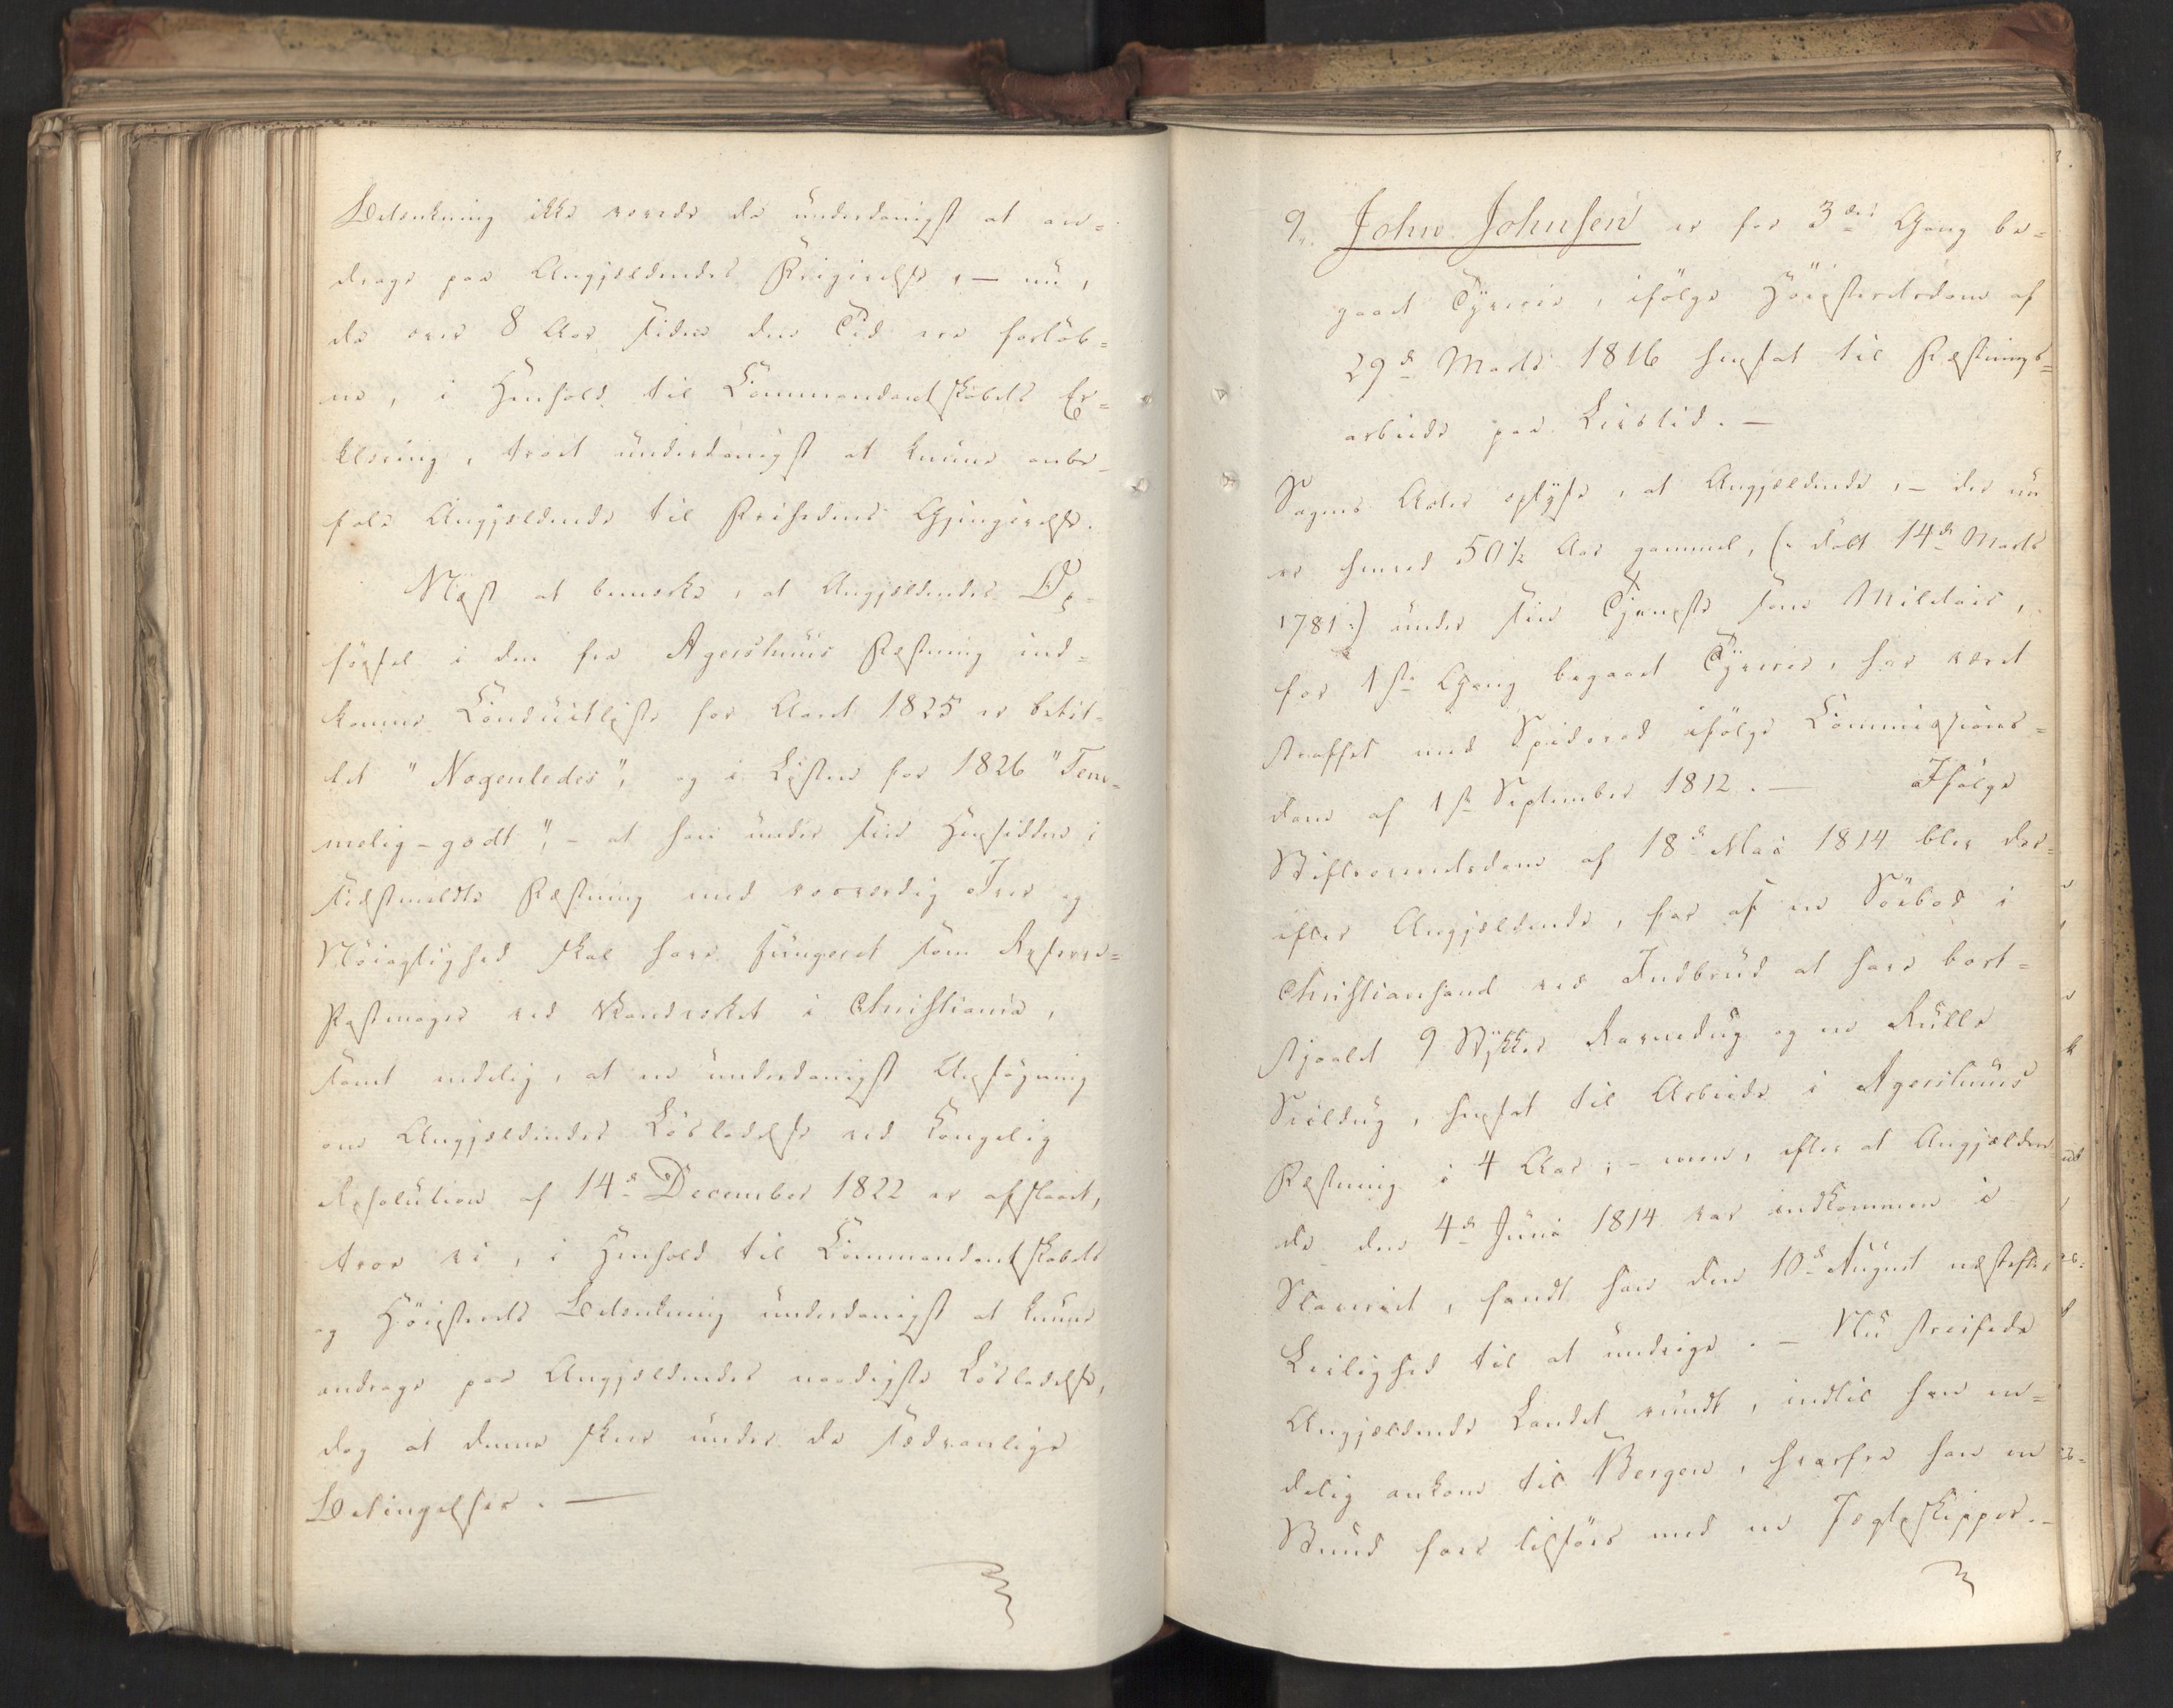 Betænkning ikke vovede da underdanigst at an=
drage paa Angjældendes Frigivelse, – nu,
da over 8 Aar siden den Tid ere forløb=
ne, i Henhold til Commandantskabets Er=
klæring, troet underdanigst at kunne anbe=
fale Angjældende til Friehedens Gjengivelse.
Næst at bemærke, at Angjældendes Op=
førsel i den fra Agershuus Fæstning ind=
komne Conduitliste for Aaret 1825 er betit=
let "Nogenledes", og i Listen for 1826 "Tem=
melig-godt", – at han under sin Hensidden i
sidstmeldte Fæstning med roesværdig Iver og
Nøiagtighed skal have fungeret som Reserve=
Postmager ved Vandværket i Christiania,
samt endelig, at en underdanigst Ansøgning
om Angjældendes Løsladelse ved Kongelig
Resolution af 14de December 1822 er afslaaet,
troe vi, i Henhold til Commandantskabets
og Høiesterets Betænkning underdanigst at kunne
andrage paa Angjældendes naadigste Løsladelse,
dog at denne skeer under de sædvanlige
Betingelser. —
9. John Johnsen er for 3die Gang be=
gaaet Tyverie, ifølge Høiesteretsdom af
29de Marts 1816 hensat til Fæstnings=
arbeide paa Livstid. –
Sagens Acter oplyse, at Angjældende, – der nu
er henved 50½ Aar gammel, (: døbt 14de Marts
1781 :) under sin Tjeneste som Militair,
for 1ste Gang begaaet Tyverie, har været
straffet med Spidsrod ifølge Commissions=
dom af 1ste September 1812. – Ifølge
Stiftsoverretsdom af 18de Mai 1814 blev der=
efter Angjældende, for af en Søebod i
Christiansand ved Indbrud at have bort=
stjaalet 9 Stykker Ravnedug og en Rulle
Seildug, hensat til Arbeide i Agershuus
Fæstning i 4 Aar; – men, efter at Angjælden=
de den 4de Juni 1814 var indkommen i
Slaveriet, fandt han den 10de August næstefter
Leilighed til at undvige. – Nu streifede
Angjældende Landet rundt, indtil han en=
delig ankom til Bergen, hvorfra han en
Stund foer tilsøes med en Jægteskipper. –